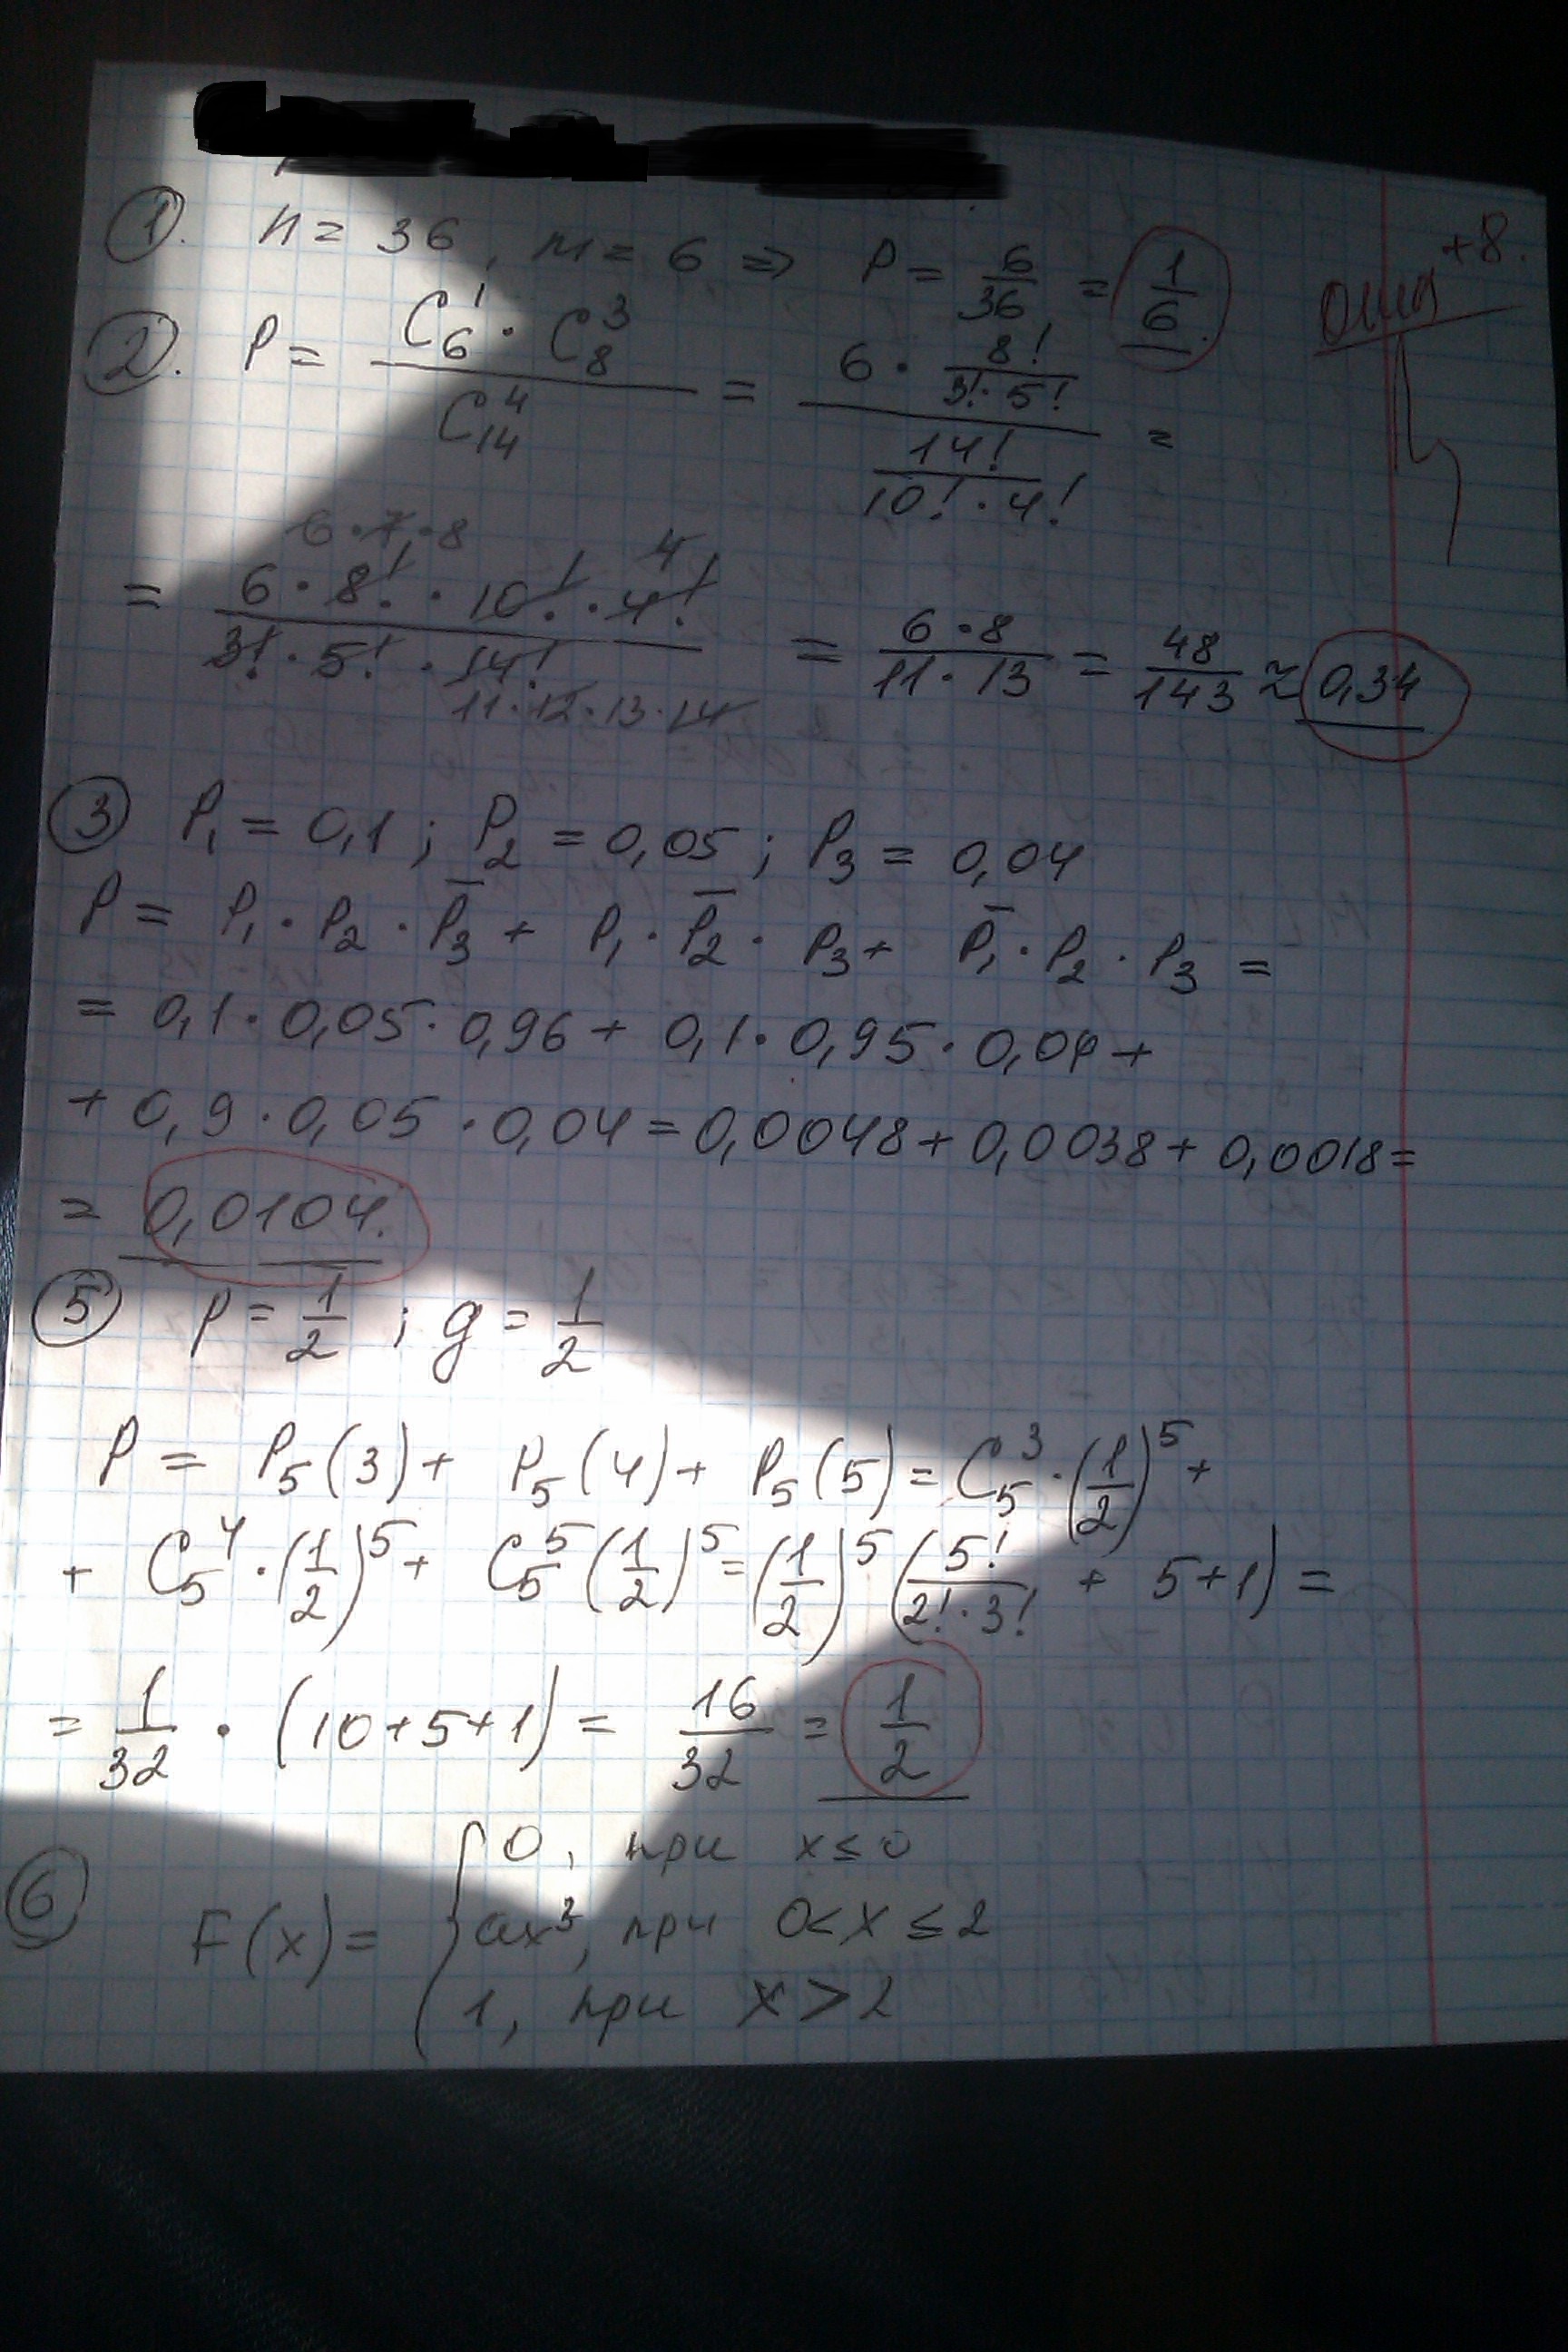 1. n = 36, m = 6 => P = 6/36 = 1/6
+8.
2. P = C₆¹ · C₈³ / C₁₄⁴ = (6 · 8!/(3! · 5!)) / (14!/(10! · 4!)) =
6·7·8 4
= 6 · 8! · 10! · 4! / (3! · 5! · 14!) = 6·8/(11·13) = 48/143 ≈ 0,34
11·12·13·14
3 P₁ = 0,1 ; P₂ = 0,05 ; P₃ = 0,04
P = P₁ · P₂ · P̄₃ + P₁ · P̄₂ · P₃ + P̄₁ · P₂ · P₃ =
= 0,1 · 0,05 · 0,96 + 0,1 · 0,95 · 0,04 +
+ 0,9 · 0,05 · 0,04 = 0,0048 + 0,0038 + 0,0018 =
= 0,0104.
5 p = 1/2 ; g = 1/2
P = P₅(3) + P₅(4) + P₅(5) = C₅³ · (1/2)⁵ +
+ C₅⁴ · (1/2)⁵ + C₅⁵ (1/2)⁵ = (1/2)⁵ (5!/(2! · 3!) + 5 + 1) =
= 1/32 · (10+5+1) = 16/32 = 1/2
6 F(x) = { 0, при x ≤ 0
ax³, при 0 < x ≤ 2
1, при x > 2